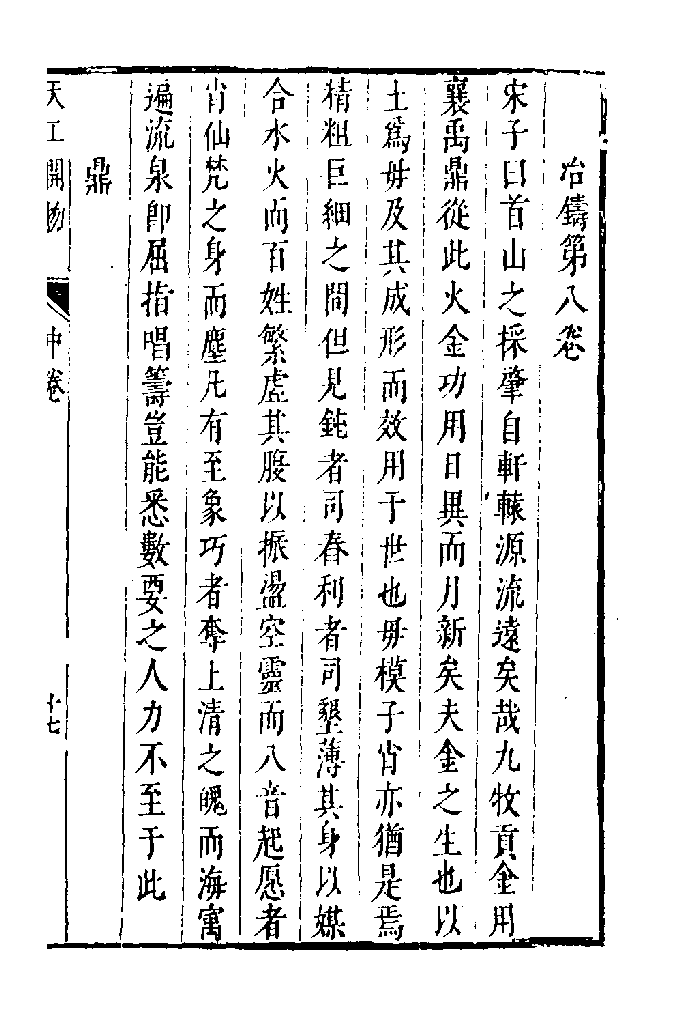 冶鑄第八卷
宋子曰首山之採肇自軒轅源流遠矣哉九牧貢金用
襄禹鼎從此火金功用日異而月新矣夫金之生也以
土爲毋及其成形而效用于世也毋模子肖亦猶是焉
精粗巨細之間但見鈍者司舂利者司墾薄其身以媒
合水火而百姓繁虛其腹以振盪空靈而八音起愿者
肖仙梵之身而塵凡有至象巧者奪上清之魄而海寓
遍流泉卽屈指唱籌豈能悉數要之人力不至于此
鼎
天工開物 中卷 十七